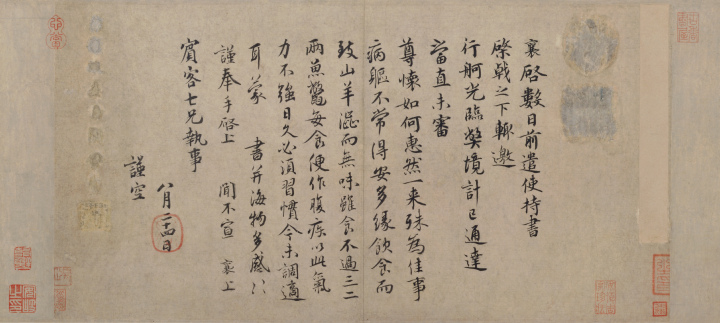 襄啓數日前遣使持書
棨戟之下輙邀
行舸光臨弊境計已通達
當直未審
尊悚如何惠然一来殊為佳事
病軀不常得安多緣飲食而
致山羊澁而無味雖食不過三二
兩魚鱉每食便作腹疾以此氣
力不強日久必須習慣今未調適
耳蒙 書并海物多感〻
謹奉手啓上 聞不宣 襄上
賓客七兄執事
八月二十四日
謹空